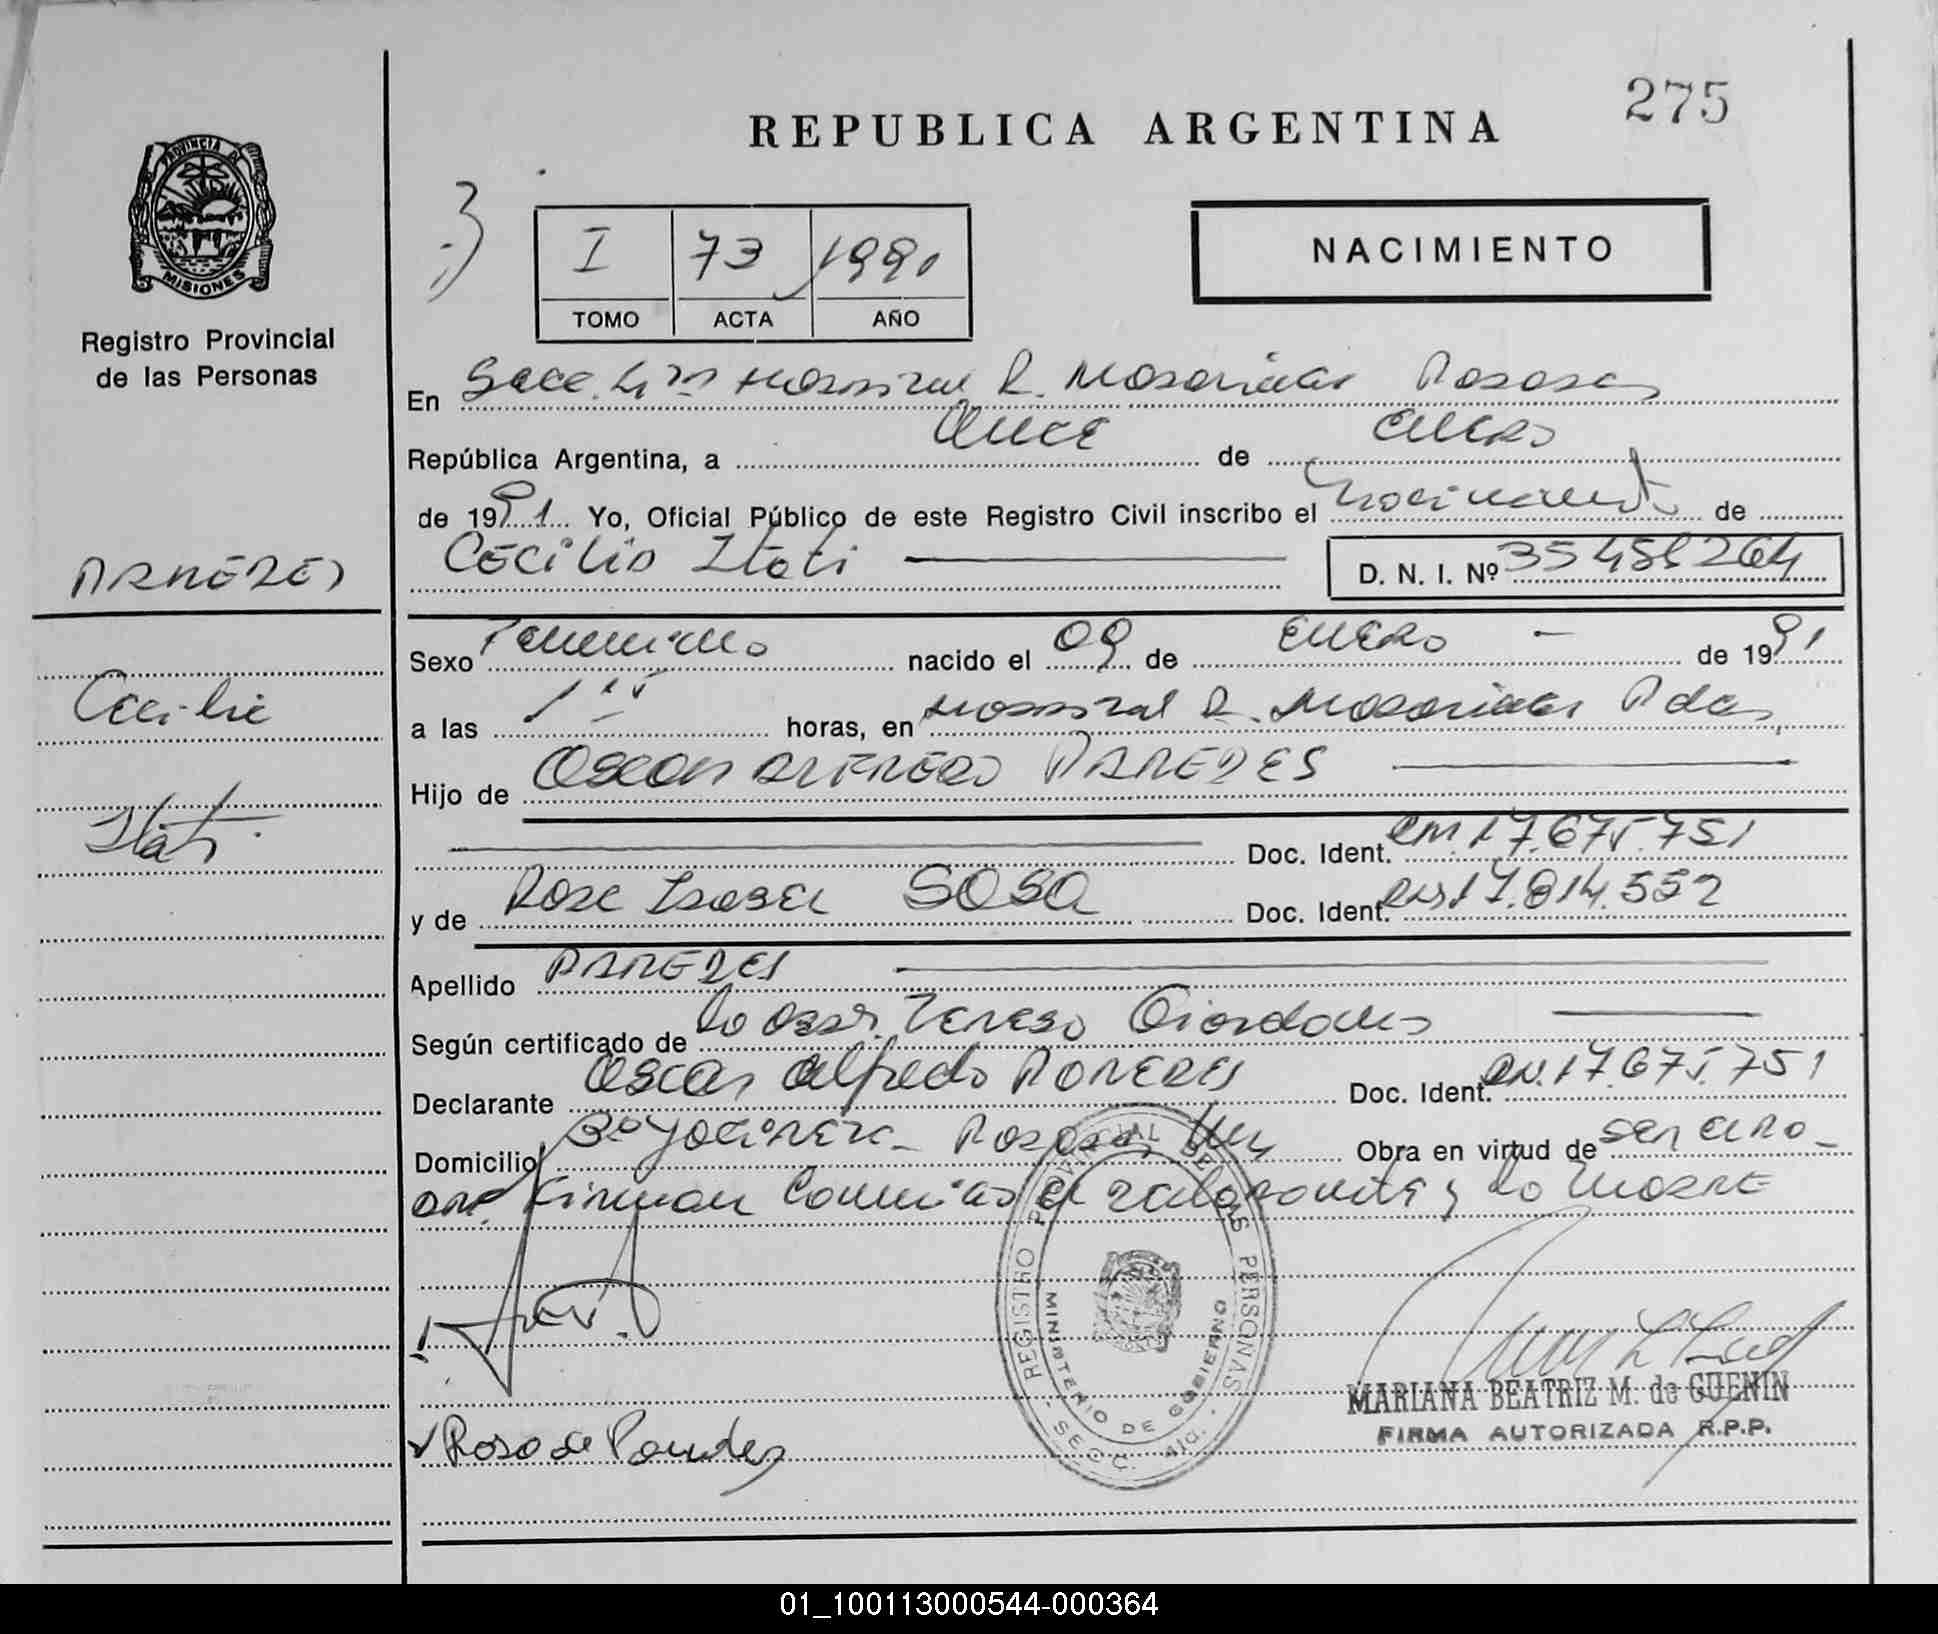 275
REPUBLICA ARGENTINA
PROVINCIA DE
MISIONES
Registro Provincial
de las Personas
I 73 1991
TOMO ACTA AÑO
NACIMIENTO
En Secc. Hospital R. Madariaga Posadas
República Argentina, a Once de Enero
de 1991. Yo, Oficial Público de este Registro Civil inscribo el nacimiento de
Cecilia Itati D. N. I. Nº
PAREDES
Cecilia
Itati
Sexo Femenino nacido el 09 de ENERO - de 1991
a las horas, en Hospital R. Madariaga Pdas
Hijo de Oscar ALFREDO PAREDES
Doc. Ident. 17.675.751
y de Rosa Isabel SOSA Doc. Ident. 17.814.552
Apellido PAREDES
Según certificado de la Obst. Teresa Giordano
Declarante Oscar Alfredo PAREDES Doc. Ident. DNI.17.675.751
Domicilio Posadas Mnes Obra en virtud de ser el Pro-
Firman Conmigo el declarante y la MADRE
REGISTRO PROVINCIAL DE LAS PERSONAS
MINISTERIO DE GOBIERNO
SECC.
MARIANA BEATRIZ M. de GUENIN
FIRMA AUTORIZADA R.P.P.
Rosa de Paredes
01_100113000544-000364